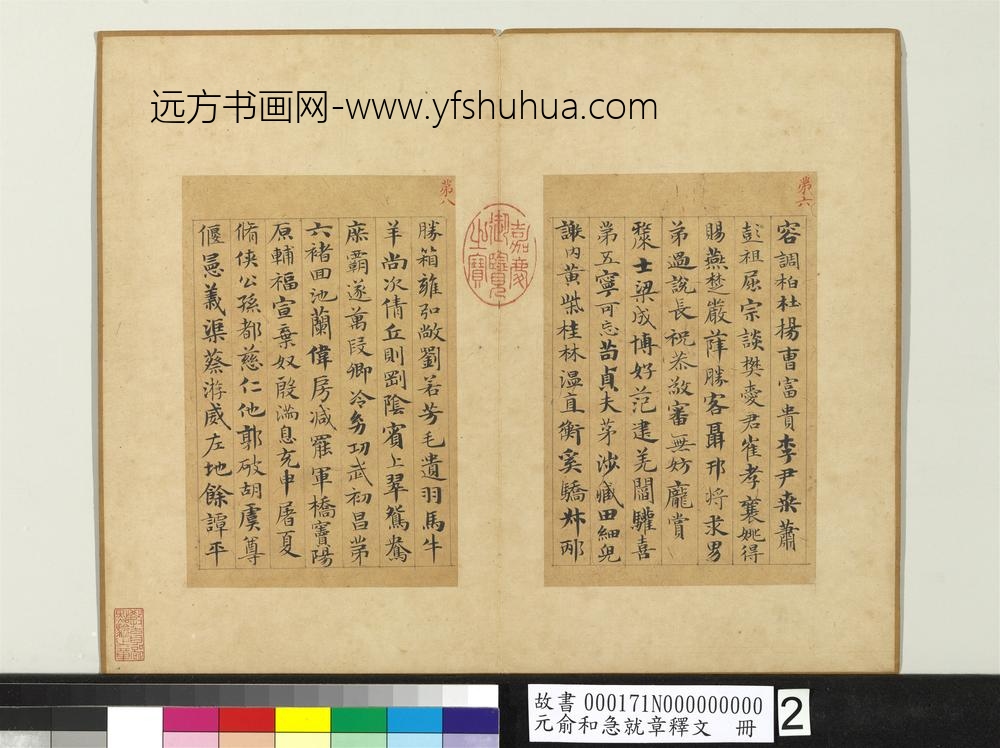 远方书画网-www.yfshuhua.com
第六
容調柏杜楊曹富貴李尹桒蕭
彭祖屈宗談樊愛君崔孝襄姚得
賜燕楚嚴薛勝客聶邗将求男
苐過說長祝恭敬審無妨龐賞
士梁成博好范建羌閻驩喜
第五寧可忘苟貞夫茅涉臧田細兒
謝内黄柴桂林温直衡奚驕
嘉慶御覽之寶
第八
勝箱雍弘敞劉若芳毛遺羽馬牛
羊尚次倩丘則劉陰賓上翠鴛鴦
庶霸遂萬段卿冷幼功武初昌苐
六褚回池蘭偉房减罷軍橋竇陽
原輔福宣棄奴殷滿息充申屠夏
脩俠公孫都慈仁他郭破胡虞尊
偃憲義渠蔡游威左地餘譚平
故書 000171N000000000
元俞和急就章釋文 冊
2